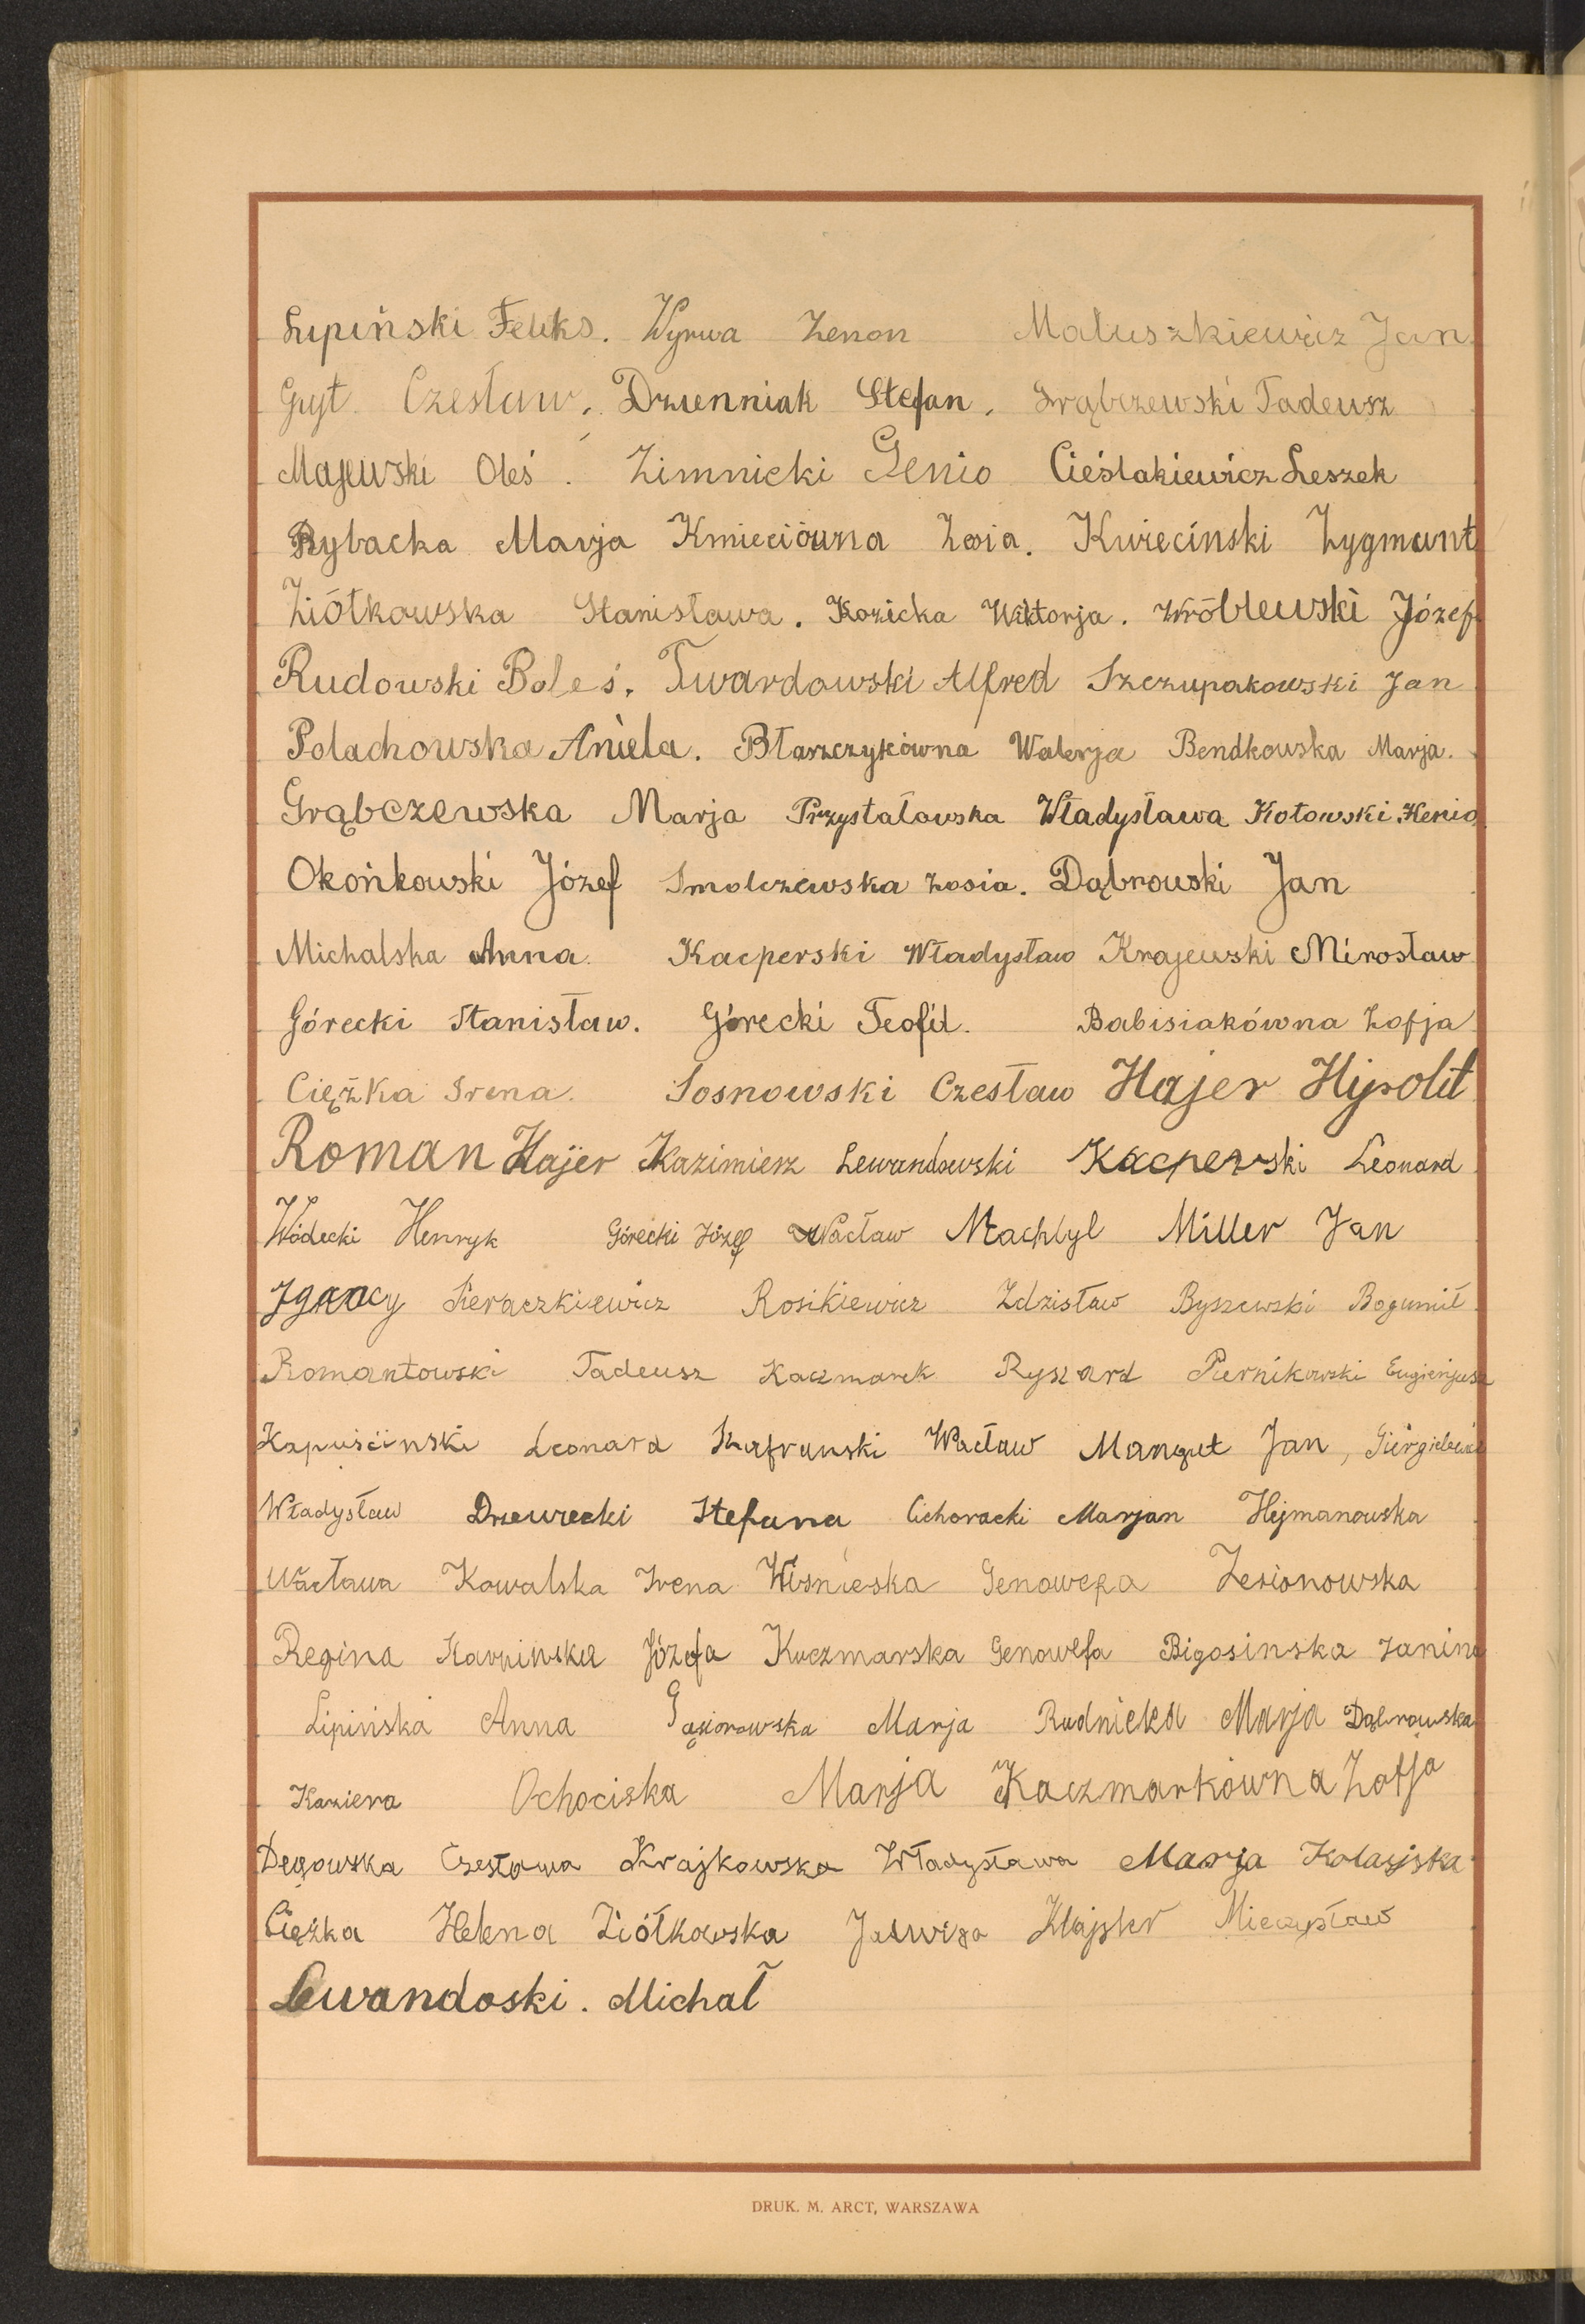 Lipiński Feliks. Wyrwa Zenon Matuszkiewicz Jan
Gryt Czesław, Dzienniak Stefan, Grąbczewski Tadeusz
Majewski Oleś. Zimnicki Genio Cieślakiewicz Leszek
Rybacka Marja Kmieciówna Zosia. Kwieciński Zygmunt
Ziółkowska Stanisława. Kozicka Wiktorja. Wróblewski Józef
Rudowski Boleś. Twardowski Alfred Szczupakowski Jan
Polachowska Aniela. Błaszczykówna Walerja Bendkowska Marja.
Grąbczewska Marja Przystałowska Władysława Kotowski Henio
Okońkowski Józef Smolczewska Zosia. Dąbrowski Jan
Michalska Anna. Kacperski Władysław Krajewski Mirosław
Górecki Stanisław. Górecki Teofil. Babisiakówna Zofja
Ciężka Irena. Sosnowski Czesław Hajer Hipolit
Roman Hajer Kazimierz Lewandowski Kacperski Leonard
Wódecki Henryk Górecki Józef Wacław Machtyl Miller Jan
Igancy Sieraczkiewicz Rosikiewicz Zdzisław Byszewski Bogumił
Romantowski Tadeusz Kaczmarek Ryszard Piernikowski Eugienjusz
Kapuściinski Leonard Szafranski Wacław Mangut Jan,
Władysław Drewiecki Stefana Cichoracki Marjan Hejmanowska
Wacława Kowalska Irena Wisnieska Genowefa Zesionowska
Regina Karpinska Józefa Kaczmarska Genowefa Bigosinska Janina
Lipińska Anna Gąsiorowska Marja Rudnicka Marja Dąbrowska
Kaziera Ochociska Marja Kaczmarkówna Zofja
Dęgowska Czesława Krajkowska Władysława Marja Kolasiska
Ciężka Helena Ziółkowska Jadwiga Klajster Mieczysław
Lewandoski. Michał
DRUK. M. ARCT, WARSZAWA